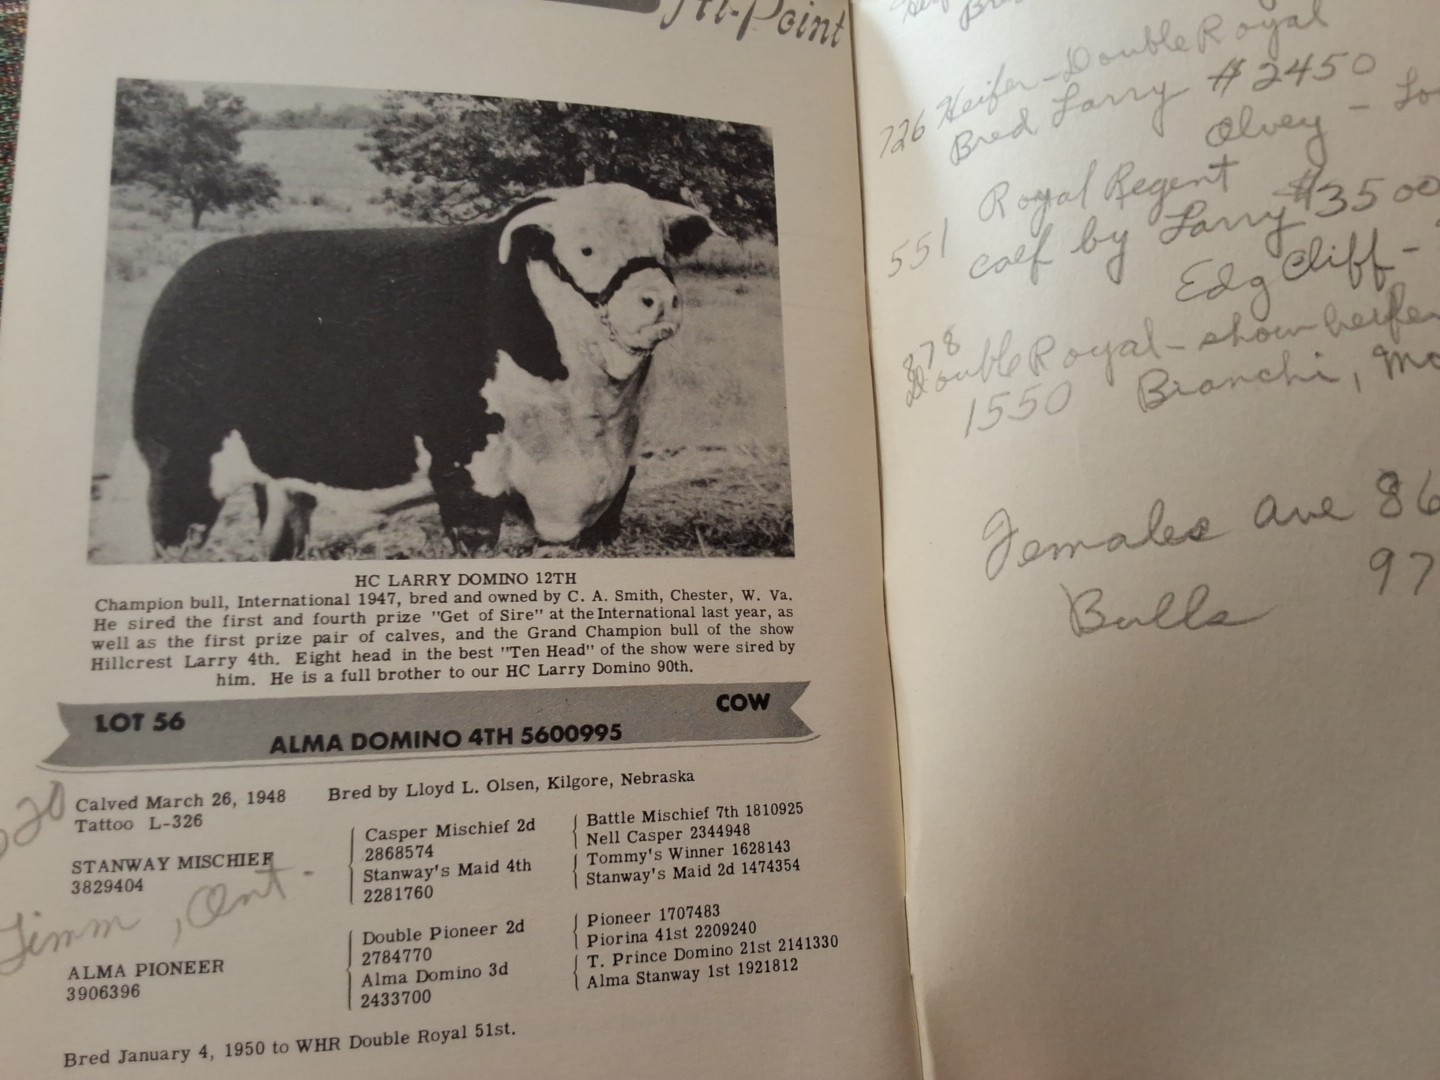 Hi-Point
HC LARRY DOMINO 12TH
Champion bull, International 1947, bred and owned by C. A. Smith, Chester, W. Va.
He sired the first and fourth prize "Get of Sire" at the International last year, as
well as the first prize pair of calves, and the Grand Champion bull of the show
Hillcrest Larry 4th. Eight head in the best "Ten Head" of the show were sired by
him. He is a full brother to our HC Larry Domino 90th.
LOT 56
COW
ALMA DOMINO 4TH 5600995
Calved March 26, 1948
Bred by Lloyd L. Olsen, Kilgore, Nebraska
Tattoo L-326
STANWAY MISCHIEF
3829404
Casper Mischief 2d
2868574
Stanway's Maid 4th
2281760
Battle Mischief 7th 1810925
Nell Casper 2344948
Tommy's Winner 1628143
Stanway's Maid 2d 1474354
Timm, Ont-
ALMA PIONEER
3906396
Double Pioneer 2d
2784770
Alma Domino 3d
2433700
Pioneer 1707483
Piorina 41st 2209240
T. Prince Domino 21st 2141330
Alma Stanway 1st 1921812
Bred January 4, 1950 to WHR Double Royal 51st.
726 Heifer-Double Royal
Bred Larry #2450
Olvey -
Royal Regent
551 calf by Larry #3500
Edg Cliff-
878
Double Royal-show heifer
1550 Bianchi,
Females Ave 86
Bulls 97